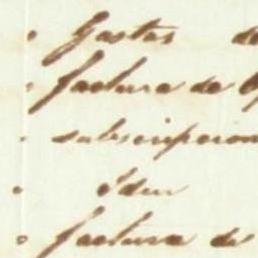 Gastos de
factura de
subscripcion
Idem
factura de